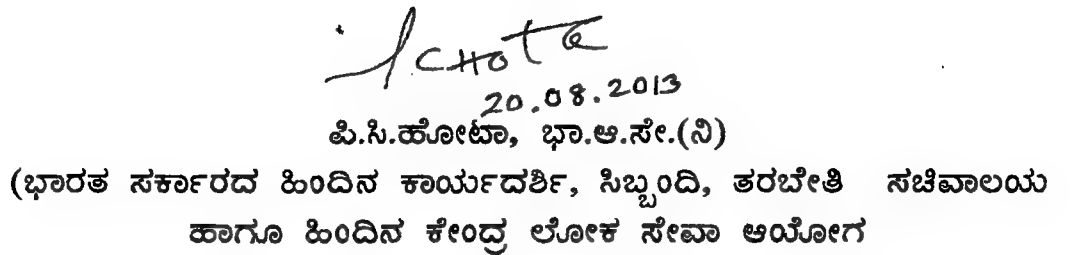 PCHota
20.08.2013
ಪಿ.ಸಿ.ಹೋಟಾ, ಭಾ.ಆ.ಸೇ.(ನಿ)
(ಭಾರತ ಸರ್ಕಾರದ ಹಿಂದಿನ ಕಾರ್ಯದರ್ಶಿ, ಸಿಬ್ಬಂದಿ, ತರಬೇತಿ ಸಚಿವಾಲಯ
ಹಾಗೂ ಹಿಂದಿನ ಕೇಂದ್ರ ಲೋಕ ಸೇವಾ ಆಯೋಗ